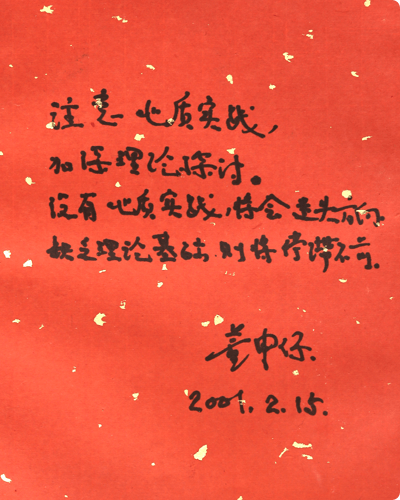 注意地质实战,
加深理论探讨。
没有地质实战,将会迷失方向。
缺乏理论基础则将停滞不前。
董申保.
2001.2.15.